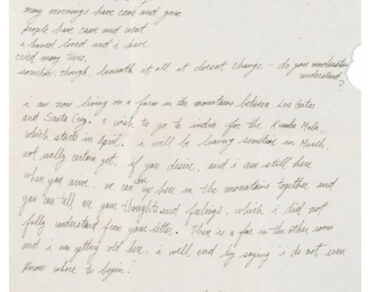 many mornings have come and gone
people have come and went
i havad loved and i have
cried many times.
somehow, though, beneath it all it doesnt change - do you
understand?
i am now living on a farm in the mountains between Los Gatos
and Santa Cruz. i wish to go to india for the Kumba Mela,
which starts in April. i will be leaving sometime in March,
not really certain yet. if you desire, and i am still here
when you arrive, we can up here in the mountains together and
you can tell me your thoughts and feelings, which i did not
fully understand from your letter. There is a fire in the other room
and i am getting cold here. i will end by saying i do not even
know where to begin.